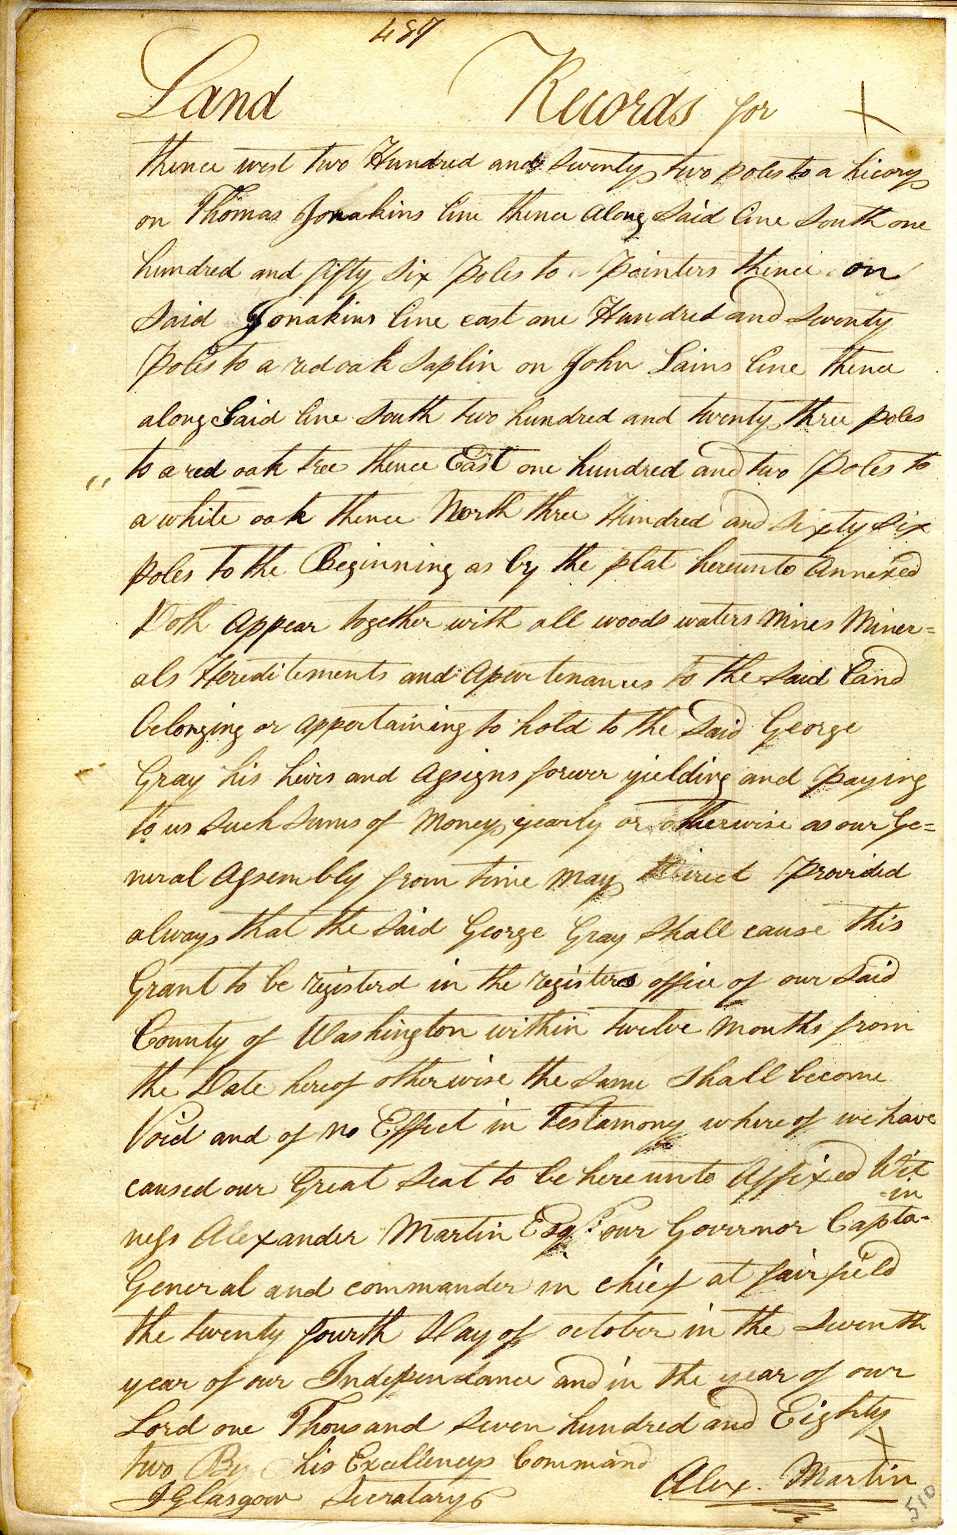 487
Land Records for
thence west two Hundred and Seventy two poles to a hicory
on Thomas Jonakins line thence along Said line South one
hundred and fifty Six Poles to Pointers thence on
Said Jonakins line east one Hundred and Seventy
Poles to a red oak Saplin on John Lains line thence
along Said line South two hundred and twenty three poles
to a red oak tree thence East one hundred and two Poles to
a white oak thence North three Hundred and Sixty Six
poles to the Beginning as by the plat hereunto Annexed
Doth Appear together with all woods waters Mines Miner=
als Hereditements and Apurtenances to the Said Land
belonging or appertaining to hold to the Said George
Gray his heirs and Assigns forever yielding and paying
to us Such Sums of Money yearly or otherwise as our Ge=
neral Assembly from time may direct Provided
always that the Said George Gray Shall cause this
Grant to be registerd in the registers office of our Said
County of Washington within twelve Months from
the Date hereof otherwise the Same Shall become
Void and of no Effect in Testamony where of we have
caused our Great Seal to be here unto Affixed Wit
ness Alexander Martin Esqr. our Governor Capta=in
General and commander in chief at fairfield
the twenty fourth Day of october in the Seventh
year of our Independance and in the year of our
Lord one Thousand Seven hundred and Eighty
two By his Excellencys Command
J Glasgow Secratary Alex. Martin
510